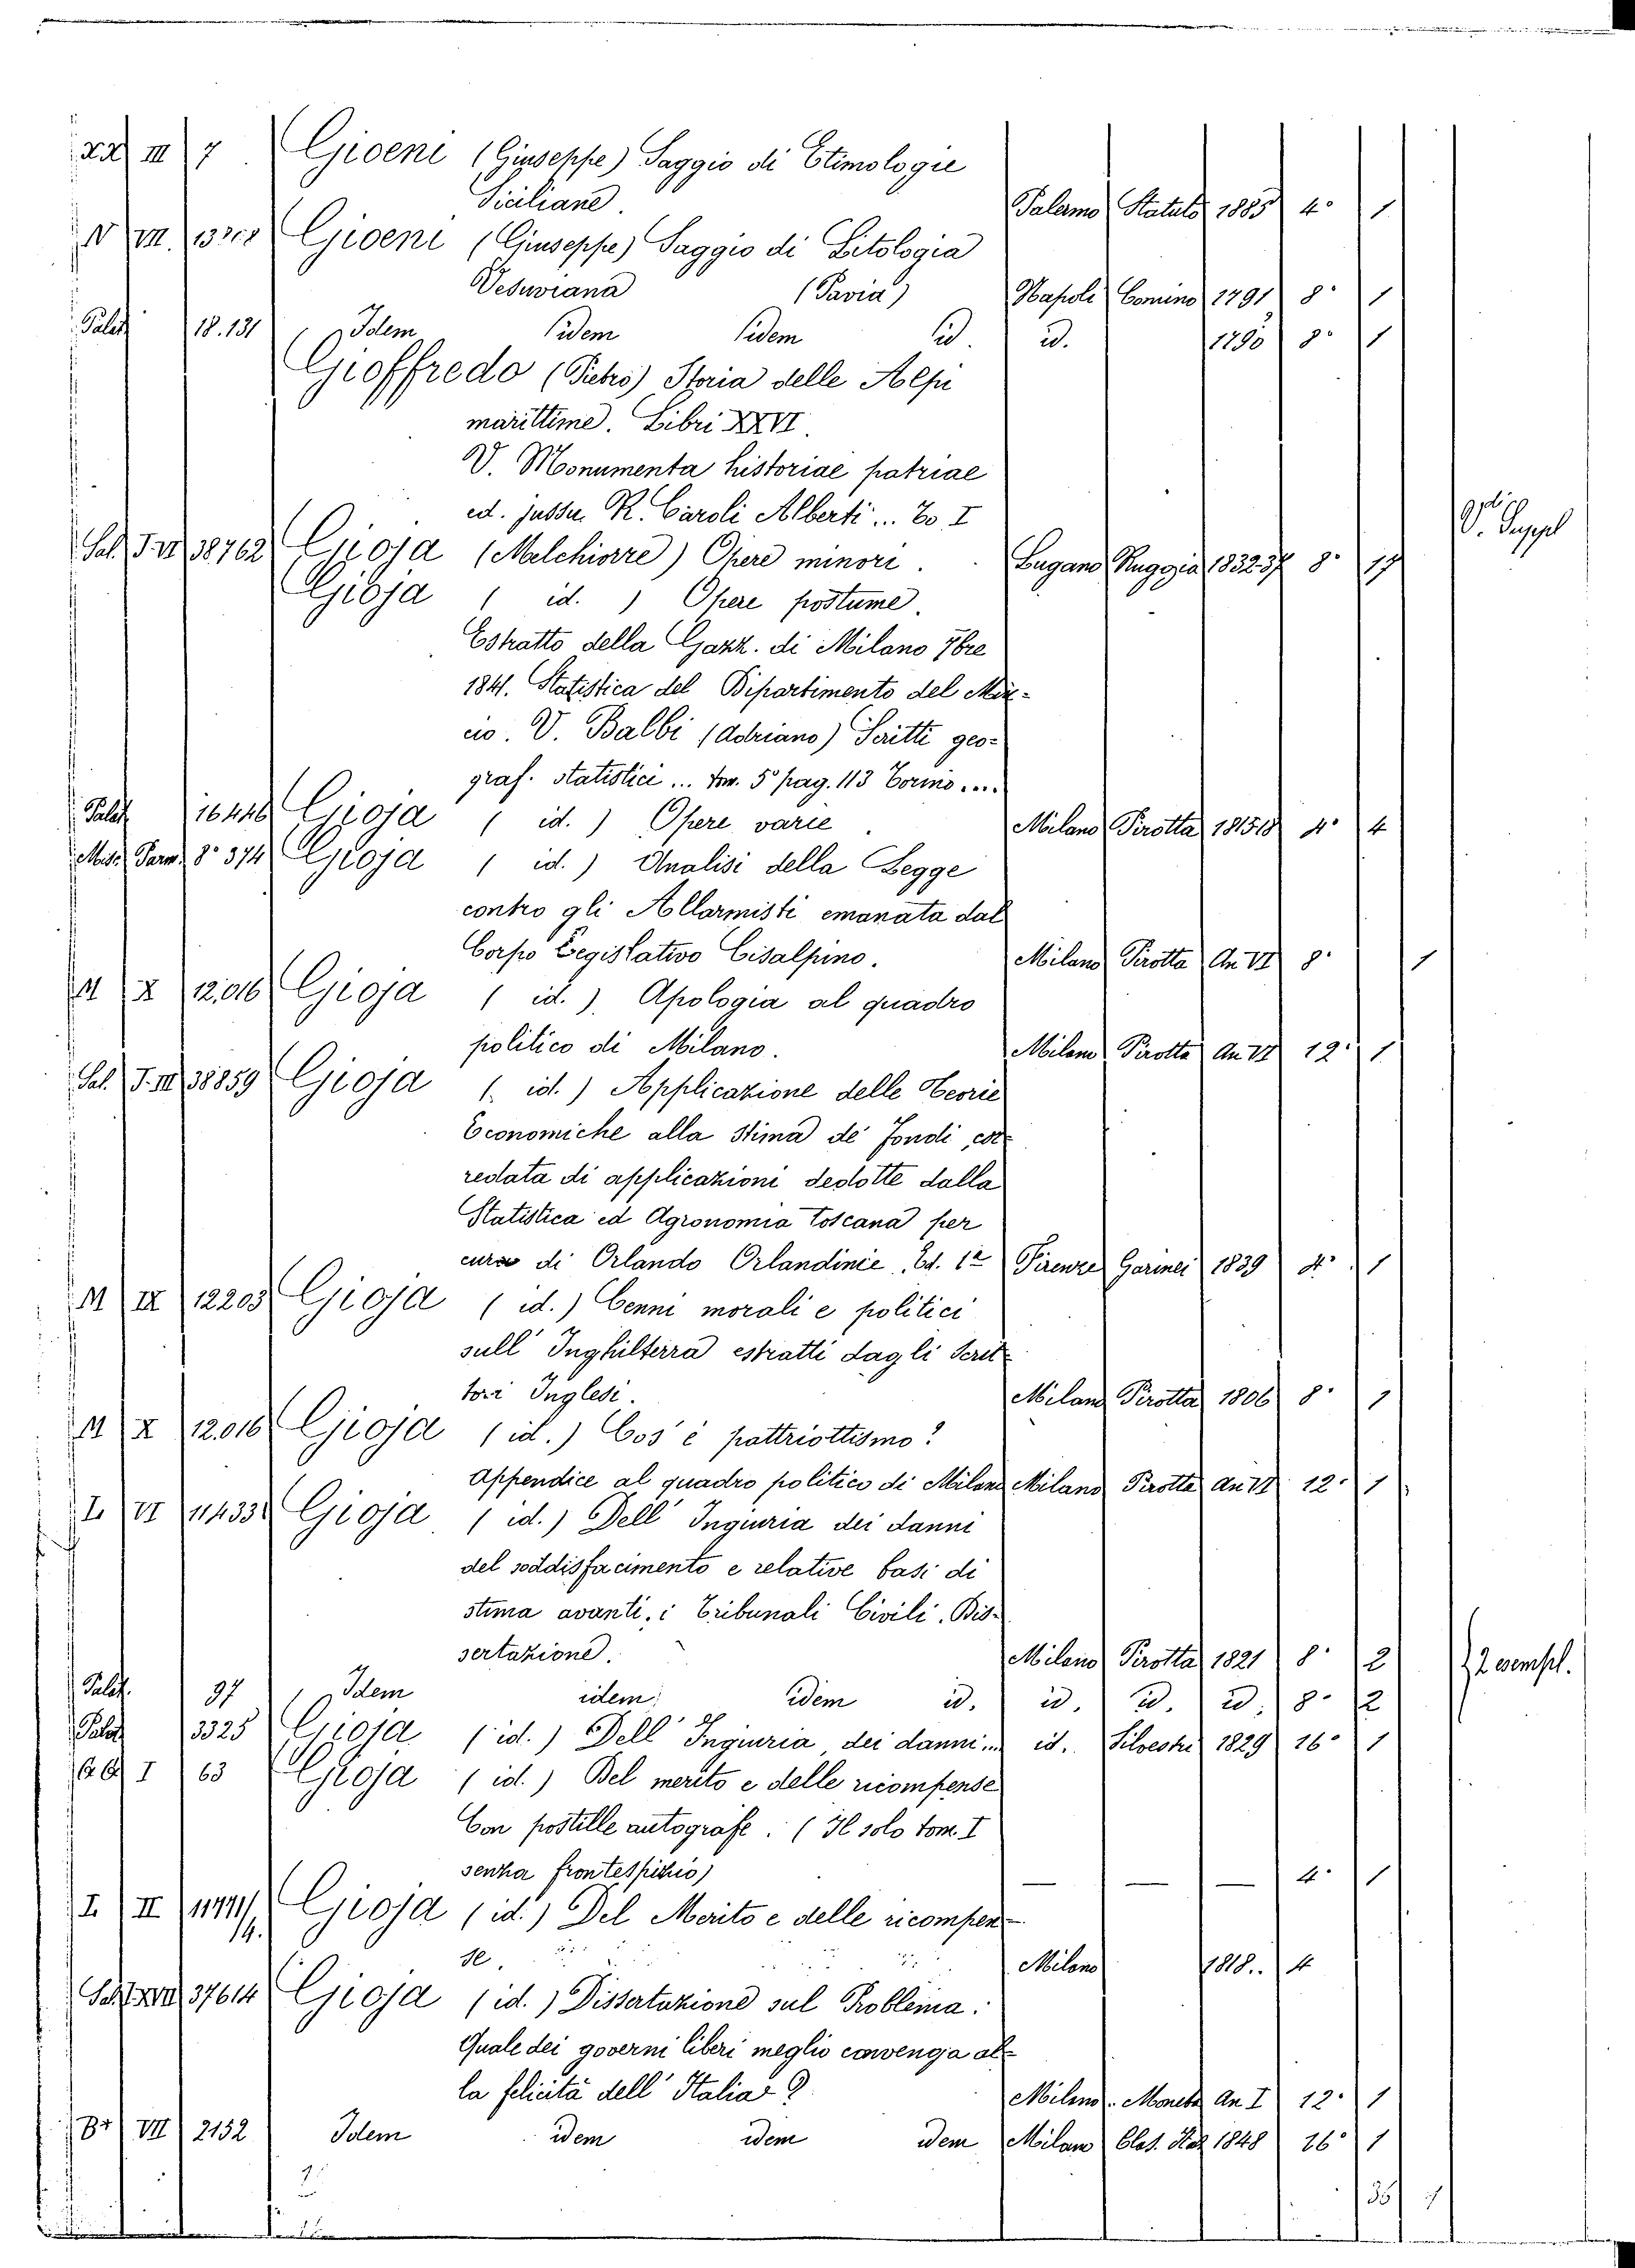 XX III 7 Gioeni (Giuseppe) Saggio di Etimologie
Siciliane. Palermo Statuto 1885 4° 1
N VII. Gioeni (Giuseppe) Saggio di Litologia
Vesuviana (Pavia) Napoli Comino 1791 8° 1
Palat. 18.131 Idem idem idem id. id. 1790 8° 1
Gioffredo (Pietro) Storia delle Alpi
marittime. Libri XXVI.
V. Monumenta historiae patriae
ed. jussu R. Caroli Alberti ... To. I
V. Suppl
Sal. 38762 Gioja (Melchiorre) Opere minori. Lugano Ruggia 1832.37 8° 17
Gioja ( id. ) Opere postume.
Estratto della Gazz. di Milano 7bre
1841. Statistica del Dipartimento del Min-
cio. V. Balbi (Adriano) Scritti geo-
graf. statistici ... tom. 5° pag. 113 Torino ....
Palat. 16446 Gioja ( id. ) Opere varie Milano Pirotta 1815.18 4° 4
Misc. Parm. 8° 374 Gioja ( id. ) Analisi della Legge
contro gli Allarmisti emanata dal
Corpo Legislativo Cisalpino. Milano Pirotta An VI 8° 1
M X 12,016 Gioja ( id. ) Apologia al quadro
politico di Milano. Milano Pirotta An VI 12° 1
Sal. T. III 38859 Gioja ( id. ) Applicazione delle Teorie
Economiche alla stima de' fondi cor-
redata di applicazioni dedotte dalla
Statistica ed Agronomia toscana per
cura di Orlando Orlandinie. Ed. 1a Firenze Garinei 1839 4° 1
M IX 12203 Gioja ( id. ) Cenni morali e politici
sull' Inghilterra estratti dagli Scrit-
tori Inglesi. Milano Pirotta 1806 8° 1
M X 12.016 Gioja ( id. ) Cos' è pattriottismo?
Appendice al quadro politico di Milano Milano Pirotta An VI 12° 1
L VI 11433 Gioja ( id. ) Dell' Ingiuria dei danni
del soddisfacimento e relative basi di
stima avanti i Tribunali Civili. Dis-
sertazione. Milano Pirotta 1821 8° 2 2 esempl.
Palat. 97 Idem idem idem id. id. id. id. 8° 2
Palat. 3325 Gioja ( id. ) Dell' Ingiuria dei danni ... id. Silvestri 1829 16° 1
I 63 Gioja ( id. ) Del merito e delle ricompense
Con postille autografe. (Il solo tom. I
senza frontespizio) — — — 4° 1
I. II Gioja ( id. ) Del Merito e delle ricompen-
se. Milano 1818.. 4
Sal. XVII 37614 Gioja ( id. ) Dissertazione sul Problema:
Quale dei governi liberi meglio convenga al-
la felicità dell' Italia? Milano Moneta An I 12° 1
B+ VII 2152 Idem idem idem idem Milano Clas. Ital. 1848 16° 1
2
35 1